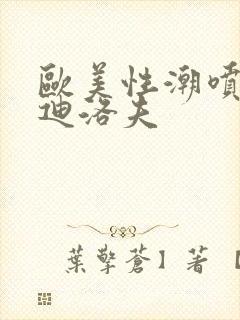 歐美性潮噴
迪洛夫
葉擎蒼】著【